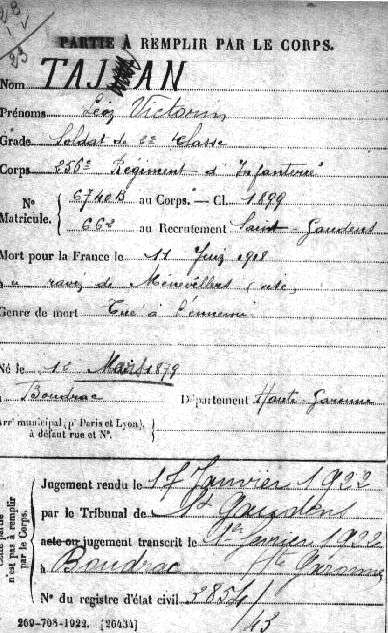 PARTIE À REMPLIR PAR LE CORPS.
Nom TAJAN
Prénoms Victorin
Grade Soldat de 2e classe
Corps 356e Régiment d'Infanterie
N° Matricule. { 6740B au Corps. — Cl. 1899
662 au Recrutement Saint-Gaudens
Mort pour la France le 11 Juin 1918
Ménévillers (Oise)
Genre de mort Tué à l'ennemi
Né le Mars 1879
à Boudrac Département Haute-Garonne
Arr' municipal (p' Paris et Lyon), à défaut rue et N°. }
Jugement rendu le 17 Janvier 1922
par le Tribunal de St Gaudens
acte ou jugement transcrit le 1922
à Boudrac Hte Garonne
N° du registre d'état civil 3854/43
n'est pas à remplir par le Corps.
269-708-1922. [26434]